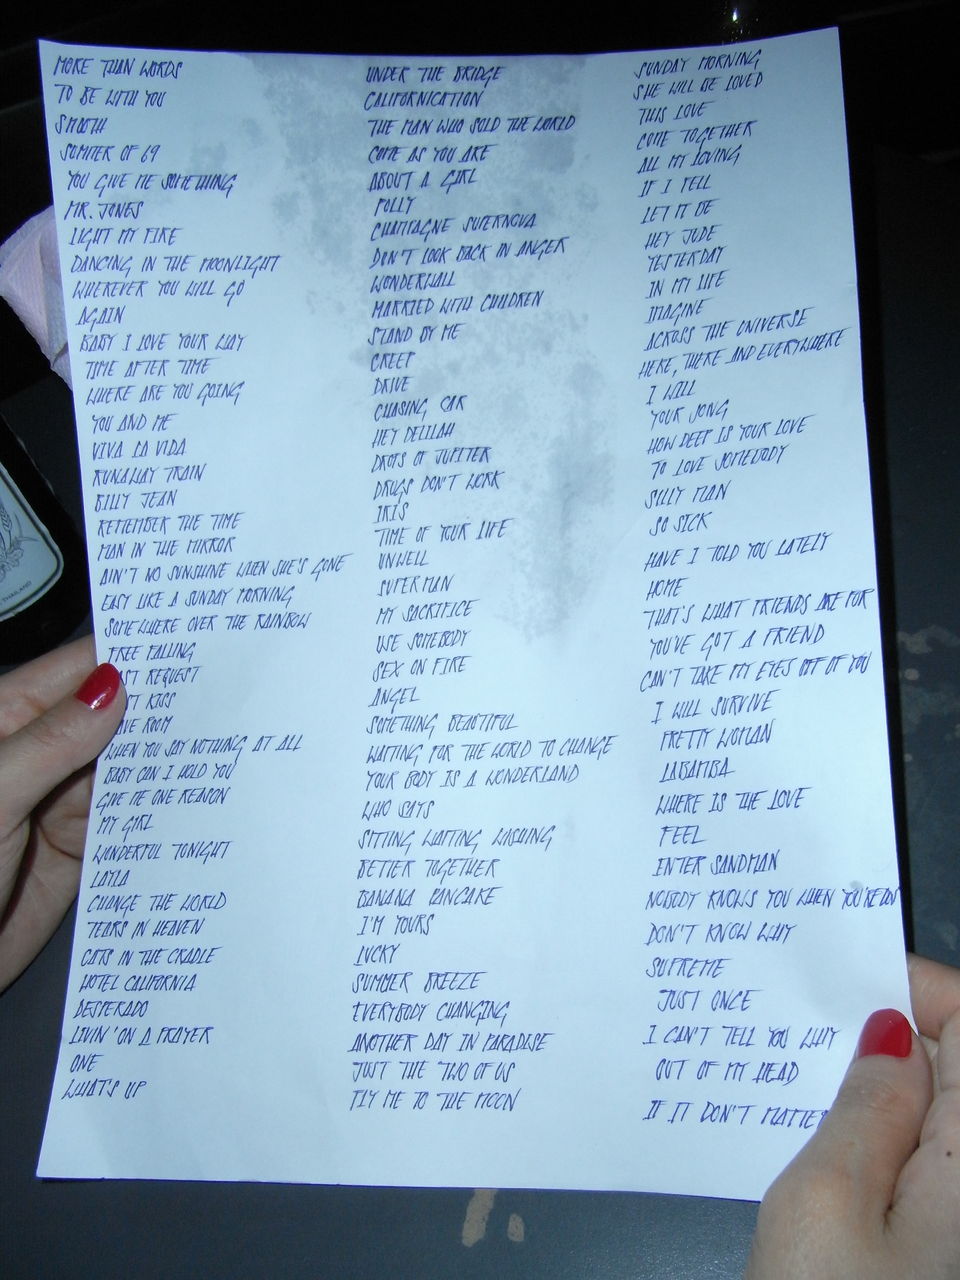 MORE THAN WORDS
TO BE WITH YOU
SMOOTH
SUMMER OF 69
YOU GIVE ME SOMETHING
MR. JONES
LIGHT MY FIRE
DANCING IN THE MOONLIGHT
WHEREVER YOU WILL GO
AGAIN
BABY I LOVE YOUR WAY
TIME AFTER TIME
WHERE ARE YOU GOING
YOU AND ME
VIVA LA VIDA
RUNAWAY TRAIN
BILLY JEAN
REMEMBER THE TIME
MAN IN THE MIRROR
AIN'T NO SUNSHINE WHEN SHE'S GONE
EASY LIKE A SUNDAY MORNING
SOMEWHERE OVER THE RAINBOW
FREE FALLING
REQUEST
KISS
ROOM
WHEN YOU SAY NOTHING AT ALL
BABY CAN I HOLD YOU
GIVE ME ONE REASON
MY GIRL
WONDERFUL TONIGHT
LAYLA
CHANGE THE WORLD
TEARS IN HEAVEN
CATS IN THE CRADLE
HOTEL CALIFORNIA
DESPERADO
LIVIN' ON A PRAYER
ONE
WHAT'S UP
UNDER THE BRIDGE
CALIFORNICATION
THE MAN WHO SOLD THE WORLD
COME AS YOU ARE
ABOUT A GIRL
POLLY
CHAMPAGNE SUPERNOVA
DON'T LOOK BACK IN ANGER
WONDERWALL
MARRIED WITH CHILDREN
STAND BY ME
CREEP
DRIVE
CHASING CAR
HEY DELILAH
DROPS OF JUPITER
DRUGS DON'T WORK
IRIS
TIME OF YOUR LIFE
UNWELL
SUPERMAN
MY SACRIFICE
USE SOMEBODY
SEX ON FIRE
ANGEL
SOMETHING BEAUTIFUL
WAITING FOR THE WORLD TO CHANGE
YOUR BODY IS A WONDERLAND
WHO SAYS
SITTING WAITING WISHING
BETTER TOGETHER
BANANA PANCAKE
I'M YOURS
LUCKY
SUMMER BREEZE
EVERYBODY CHANGING
ANOTHER DAY IN PARADISE
JUST THE TWO OF US
FLY ME TO THE MOON
SUNDAY MORNING
SHE WILL BE LOVED
THIS LOVE
COME TOGETHER
ALL MY LOVING
IF I FELL
LET IT BE
HEY JUDE
YESTERDAY
IN MY LIFE
IMAGINE
ACROSS THE UNIVERSE
HERE, THERE AND EVERYWHERE
I WILL
YOUR SONG
HOW DEEP IS YOUR LOVE
TO LOVE SOMEBODY
SILLY MAN
SO SICK
HAVE I TOLD YOU LATELY
HOME
THAT'S WHAT FRIENDS ARE FOR
YOU'VE GOT A FRIEND
CAN'T TAKE MY EYES OFF OF YOU
I WILL SURVIVE
PRETTY WOMAN
LABAMBA
WHERE IS THE LOVE
FEEL
ENTER SANDMAN
NOBODY KNOWS YOU WHEN YOU'RE
DON'T KNOW WHY
SUPREME
JUST ONCE
I CAN'T TELL YOU WHY
OUT OF MY HEAD
IF IT DON'T MATTER
THAILAND